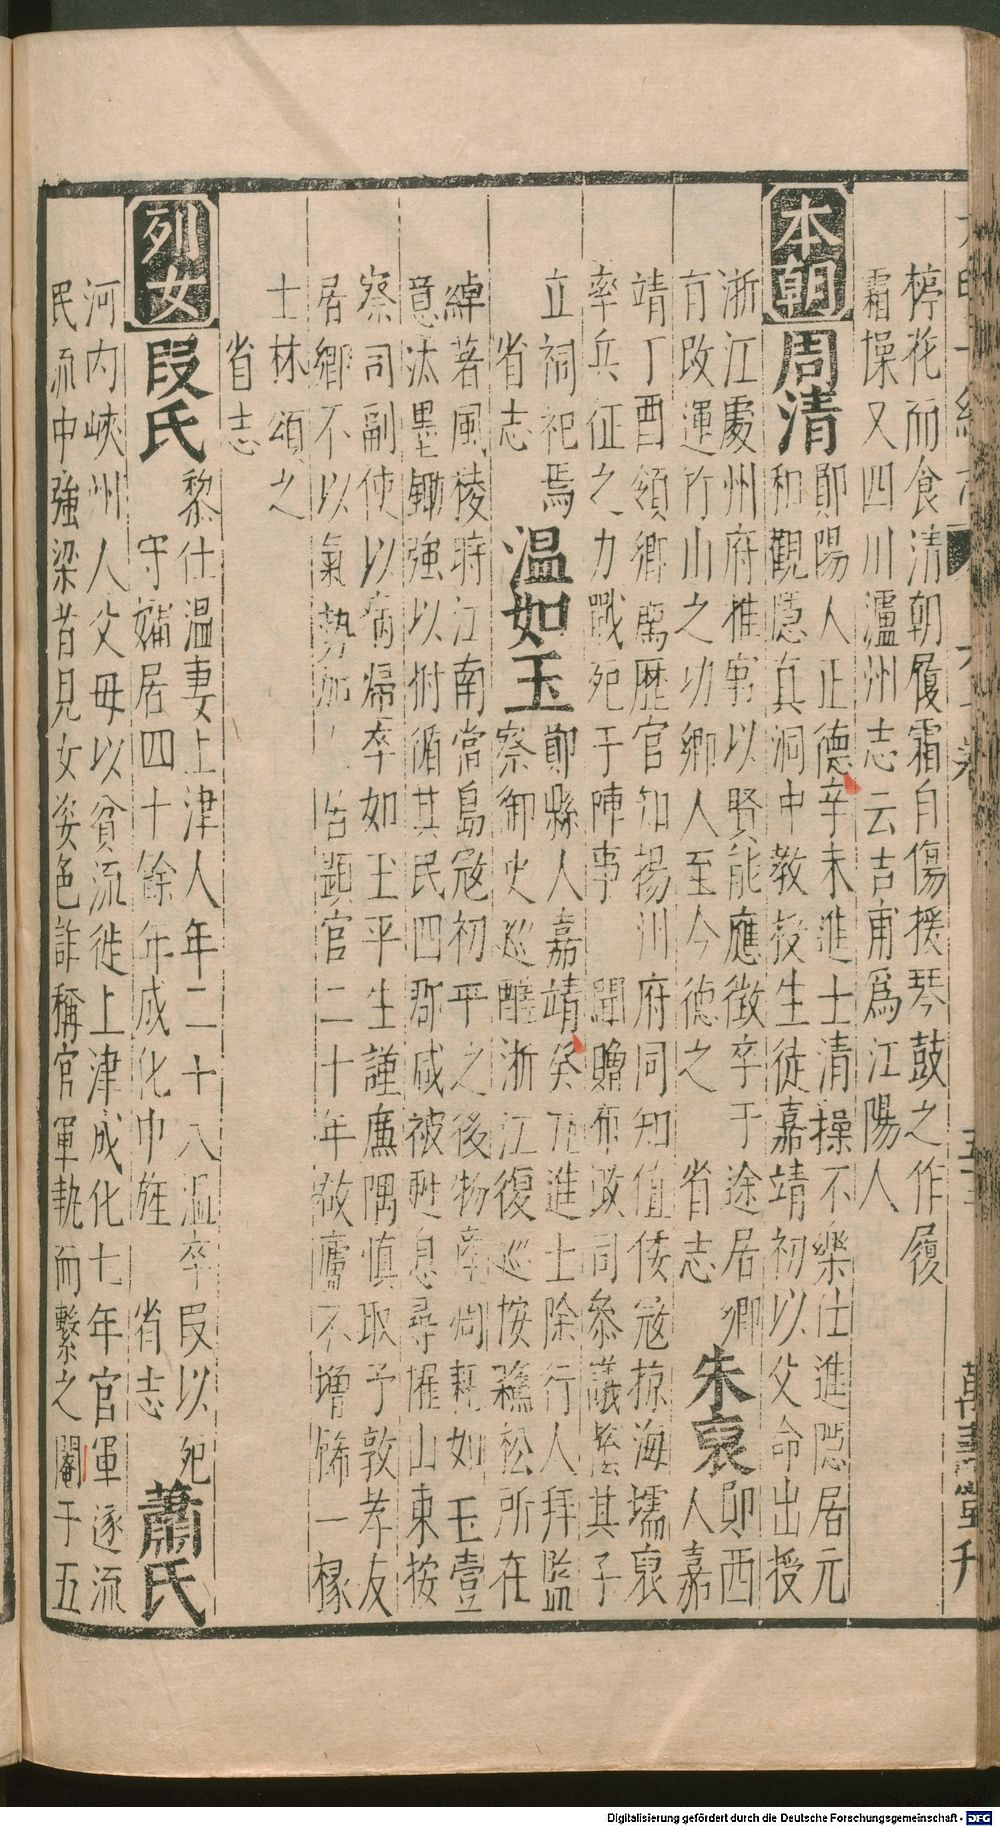 楟花而食清朝履霜自傷援琴鼓之作履
霜操又四川瀘州志云吉甫爲江陽人
本朝
周清
鄖陽人正德辛未進士清操不樂仕進隱居元
和觀隱真洞中教授生徒嘉靖初以父命出授
浙江處州府推官以賢能應徴卒于途居鄉
有改運竹山之功鄉人至今德之 省志
朱衷
鄖西
人嘉
靖丁酉領鄉薦歴官知揚州府同知值倭寇掠海壖衷
率兵征之力戰死于陣事 聞贈布政司叅議蔭其子
立祠祀焉
省志
温如玉
鄖縣人嘉靖癸 進士除行人拜監
察御史巡 浙江復巡按蘓松所在
綽著風棱時江南當島冦初平之後物産凋耗如玉壹
意汰墨鋤強以拊循其民四郡咸被甦息尋擢山東按
察司副使以病歸卒如玉平生謹廉隅慎取予敦孝友
居鄉不以氣勢加人 官二十年敝廬不增餙一椽
士林頌之
省志
列女
段氏
黎仕温妻上津人年二十八温卒段以死
守孀居四十餘年成化中旌 省志
蕭氏
河内峽州人父母以貧流徙上津成化七年官軍逐流
民流中強梁者見女姿色詐稱官軍執而繫之闇于五
萬壽堂刋